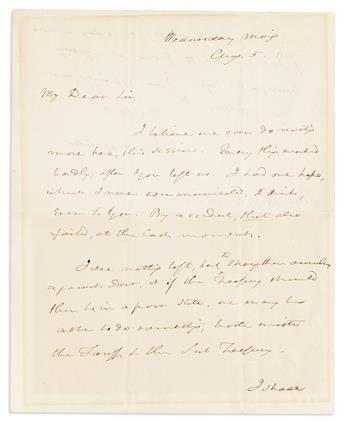 Wednesday Mog
Aug. 5.
My Dear Sir
I believe we can do nothg
more here, this Session. Every thig worked
badly, after you left us. I had one hope,
which I never communicated, I think,
even to you. By accident, that also
failed, at the last moment.
I see nothg left, but to strengthen ourselves
against Decr. & if the Treasury should
then be in a poor state, we may be
able to do somethg, both with
the Tariff & the Sub Treasury.